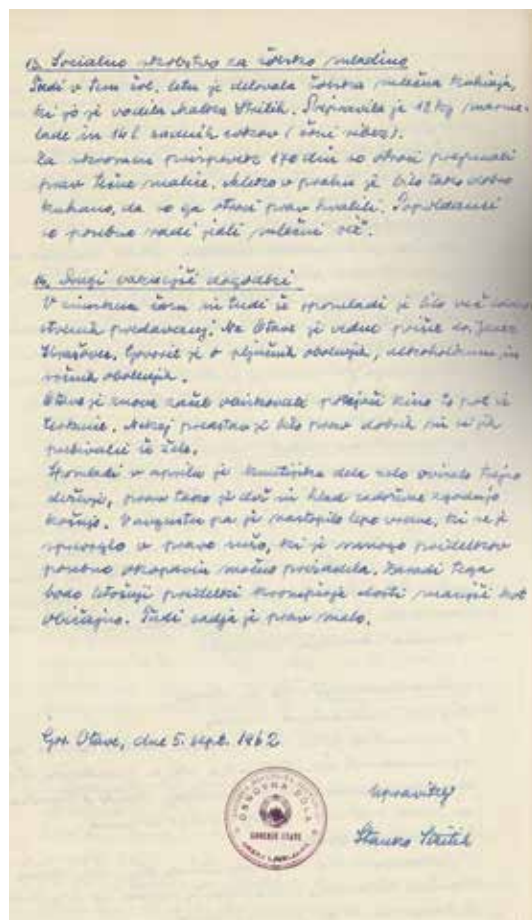 13. Socialno skrbstvo za šolsko mladino
Tudi v tem šol. letu je delovala šolska mlečna kuhinja,
ki jo je vodila Malka Škilih. Pripravila je 12 kg marme-
lade in 14 l sadnih sokov (črni ribez).
Za skromen prispevek 170 din so otroci prejemali
prav tečne malice. Mleko v prahu je bilo tako dobro
kuhano, da so ga otroci prav hvalili. Popoldanci
so posebno radi jedli mlečni riž.
14. Drugi važnejši dogodki
V zimskem času in tudi še spomladi je bilo več
predavanj. Na Otave je vedno prišel dr. Janez
Govoril je o pljučnih obolenjih, alkoholizmu in
obolenjih.
Otave je znova začel obiskovati potujoči kino to pot iz
Nekaj predstav je bilo prav dobrih
Spomladi v aprilu je kmetijska dela zelo oviralo trajno
deževje, prav tako je dež in hlad zadržal zgodnjo
košnjo. V avgustu pa je nastopilo lepo vreme, ki se je
spremenilo v pravo sušo, ki je mnogo pridelkov
posebno okopavin močno prizadela. Zaradi tega
bodo letošnji pridelki krompirja dosti manjši kot
običajno. Tudi sadja je prav malo.
Gor. Otave, dne 5. sept. 1962
OSNOVNA ŠOLA
GORENJE OTAVE
Upravitelj
Stanko Škilih